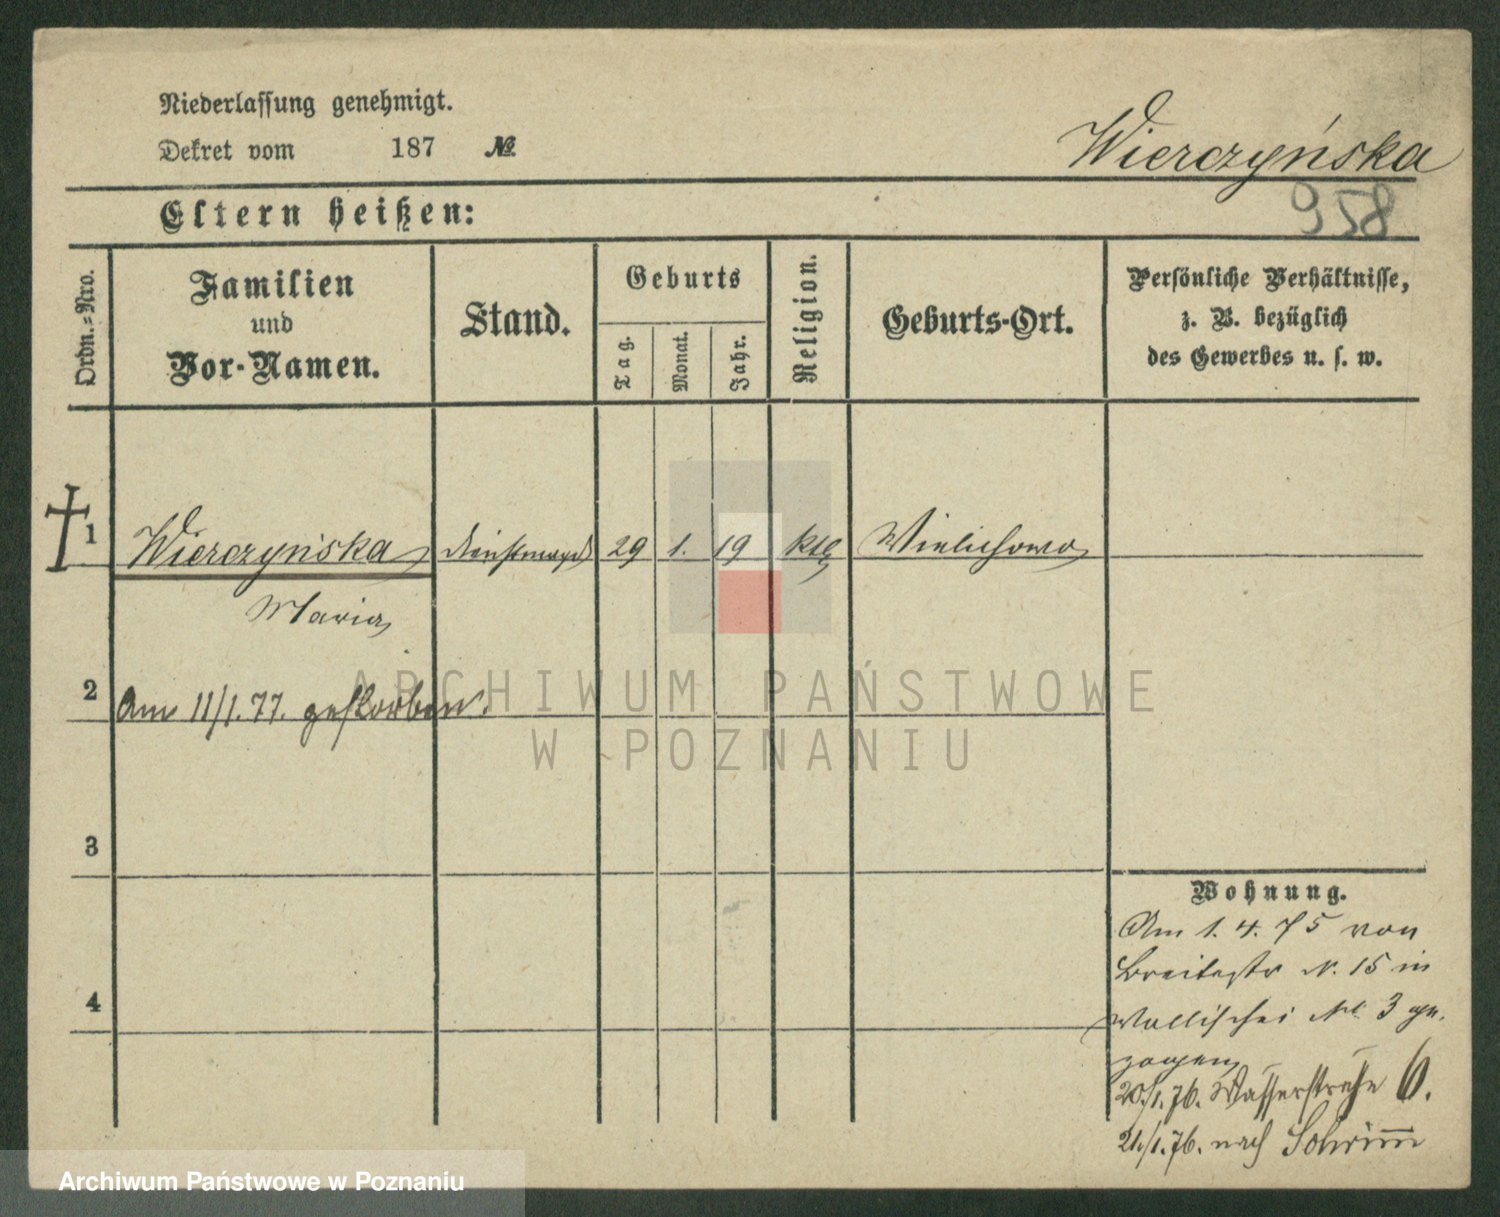 Niederlassung genehmigt.
Dekret vom 187 №
Wierczyńska
958
Eltern heißen:
Ordn.-Nro.
Familien
und
Vor-Namen.
Stand.
Geburts
Tag.
Monat.
Jahr.
Religion.
Geburts-Ort.
Persönliche Verhältnisse,
z. B. bezüglich
des Gewerbes u. s. w.
1 Wierczyńska Dienstmagd 29 1. 19 kth Wielichowo
Maria
2 Am 11/1. 77. gestorben.
3
4
Wohnung.
Am 1. 4. 75 von
Breitestr N. 15 in
Wallischei No 3 ge-
zogen
20/1. 76. Wasserstraße 6.
21/1. 76. nach Schrimm
ARCHIWUM PAŃSTWOWE
W POZNANIU
Archiwum Państwowe w Poznaniu